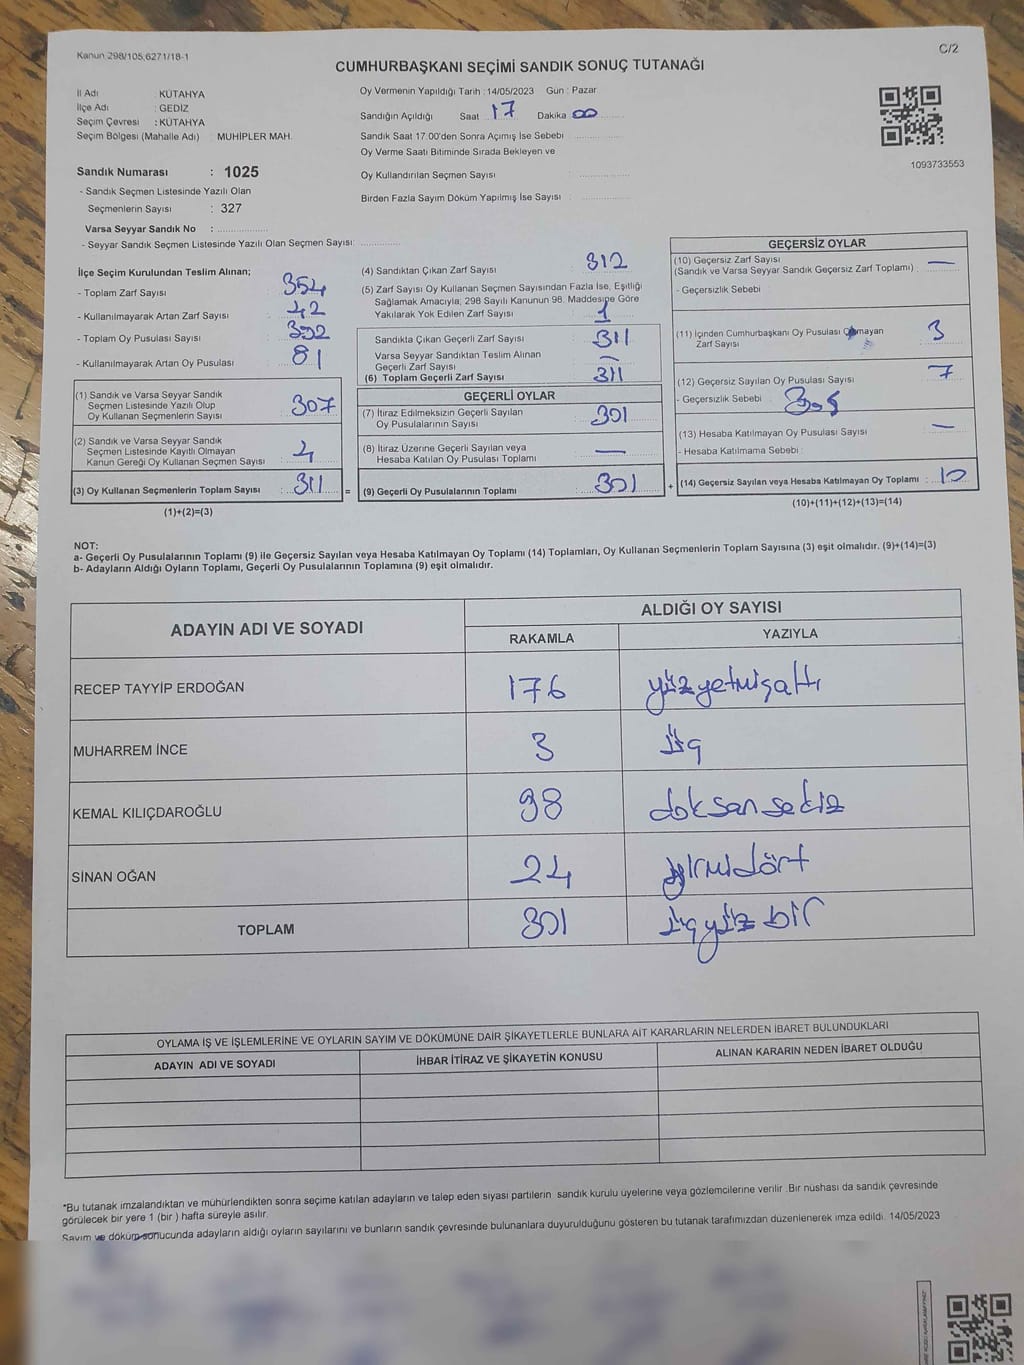 Kanun 298/105,6271/18-1
C/2
CUMHURBAŞKANI SEÇİMİ SANDIK SONUÇ TUTANAĞI
İl Adı KÜTAHYA
İlçe Adı : GEDİZ
Seçim Çevresi : KÜTAHYA
Seçim Bölgesi (Mahalle Adı) : MUHİPLER MAH.
Sandık Numarası : 1025
- Sandık Seçmen Listesinde Yazılı Olan
Seçmenlerin Sayısı : 327
Varsa Seyyar Sandık No :
- Seyyar Sandık Seçmen Listesinde Yazılı Olan Seçmen Sayısı:
Oy Vermenin Yapıldığı Tarih : 14/05/2023 Gün : Pazar
Sandığın Açıldığı Saat 17 Dakika 00
Sandık Saat 17.00'den Sonra Açımış İse Sebebi
Oy Verme Saati Bitiminde Sırada Bekleyen ve
Oy Kullandırılan Seçmen Sayısı :
Birden Fazla Sayım Döküm Yapılmış İse Sayısı :
1093733553
İlçe Seçim Kurulundan Teslim Alınan;
- Toplam Zarf Sayısı : 354
- Kullanılmayarak Artan Zarf Sayısı : 42
- Toplam Oy Pusulası Sayısı : 392
- Kullanılmayarak Artan Oy Pusulası : 81
(1) Sandık ve Varsa Seyyar Sandık
Seçmen Listesinde Yazılı Olup
Oy Kullanan Seçmenlerin Sayısı : 307
(2) Sandık ve Varsa Seyyar Sandık
Seçmen Listesinde Kayıtlı Olmayan
Kanun Gereği Oy Kullanan Seçmen Sayısı : 4
(3) Oy Kullanan Seçmenlerin Toplam Sayısı : 311 =
(1)+(2)=(3)
(4) Sandıktan Çıkan Zarf Sayısı : 312
(5) Zarf Sayısı Oy Kullanan Seçmen Sayısından Fazla İse, Eşitliği
Sağlamak Amacıyla; 298 Sayılı Kanunun 98. Maddesine Göre
Yakılarak Yok Edilen Zarf Sayısı : 1
Sandıkta Çıkan Geçerli Zarf Sayısı : 311
Varsa Seyyar Sandıktan Teslim Alınan
Geçerli Zarf Sayısı : —
(6) Toplam Geçerli Zarf Sayısı : 311
GEÇERLİ OYLAR
(7) İtiraz Edilmeksizin Geçerli Sayılan
Oy Pusulalarının Sayısı : 301
(8) İtiraz Üzerine Geçerli Sayılan veya
Hesaba Katılan Oy Pusulası Toplamı : —
(9) Geçerli Oy Pusulalarının Toplamı : 301 +
GEÇERSİZ OYLAR
(10) Geçersiz Zarf Sayısı
(Sandık ve Varsa Seyyar Sandık Geçersiz Zarf Toplamı) : —
- Geçersizlik Sebebi :
(11) İçinden Cumhurbaşkanı Oy Pusulası Çıkmayan
Zarf Sayısı : 3
(12) Geçersiz Sayılan Oy Pusulası Sayısı : 7
- Geçersizlik Sebebi :
(13) Hesaba Katılmayan Oy Pusulası Sayısı : —
- Hesaba Katılmama Sebebi :
(14) Geçersiz Sayılan veya Hesaba Katılmayan Oy Toplamı : 10
(10)+(11)+(12)+(13)=(14)
NOT:
a- Geçerli Oy Pusulalarının Toplamı (9) ile Geçersiz Sayılan veya Hesaba Katılmayan Oy Toplamı (14) Toplamları, Oy Kullanan Seçmenlerin Toplam Sayısına (3) eşit olmalıdır. (9)+(14)=(3)
b- Adayların Aldığı Oyların Toplamı, Geçerli Oy Pusulalarının Toplamına (9) eşit olmalıdır.
ADAYIN ADI VE SOYADI ALDIĞI OY SAYISI
RAKAMLA YAZIYLA
RECEP TAYYİP ERDOĞAN 176 yüzyetmişaltı
MUHARREM İNCE 3 üç
KEMAL KILIÇDAROĞLU 98 doksansekiz
SİNAN OĞAN 24 yirmidört
TOPLAM 301 üçyüz bir
OYLAMA İŞ VE İŞLEMLERİNE VE OYLARIN SAYIM VE DÖKÜMÜNE DAİR ŞİKAYETLERLE BUNLARA AİT KARARLARIN NELERDEN İBARET BULUNDUKLARI
ADAYIN ADI VE SOYADI İHBAR İTİRAZ VE ŞİKAYETİN KONUSU ALINAN KARARIN NEDEN İBARET OLDUĞU
*Bu tutanak imzalandıktan ve mühürlendikten sonra seçime katılan adayların ve talep eden siyasi partilerin sandık kurulu üyelerine veya gözlemcilerine verilir .Bir nüshası da sandık çevresinde
görülecek bir yere 1 (bir ) hafta süreyle asılır.
Sayım ve döküm sonucunda adayların aldığı oyların sayılarını ve bunların sandık çevresinde bulunanlara duyurulduğunu gösteren bu tutanak tarafımızdan düzenlenerek imza edildi. 14/05/2023